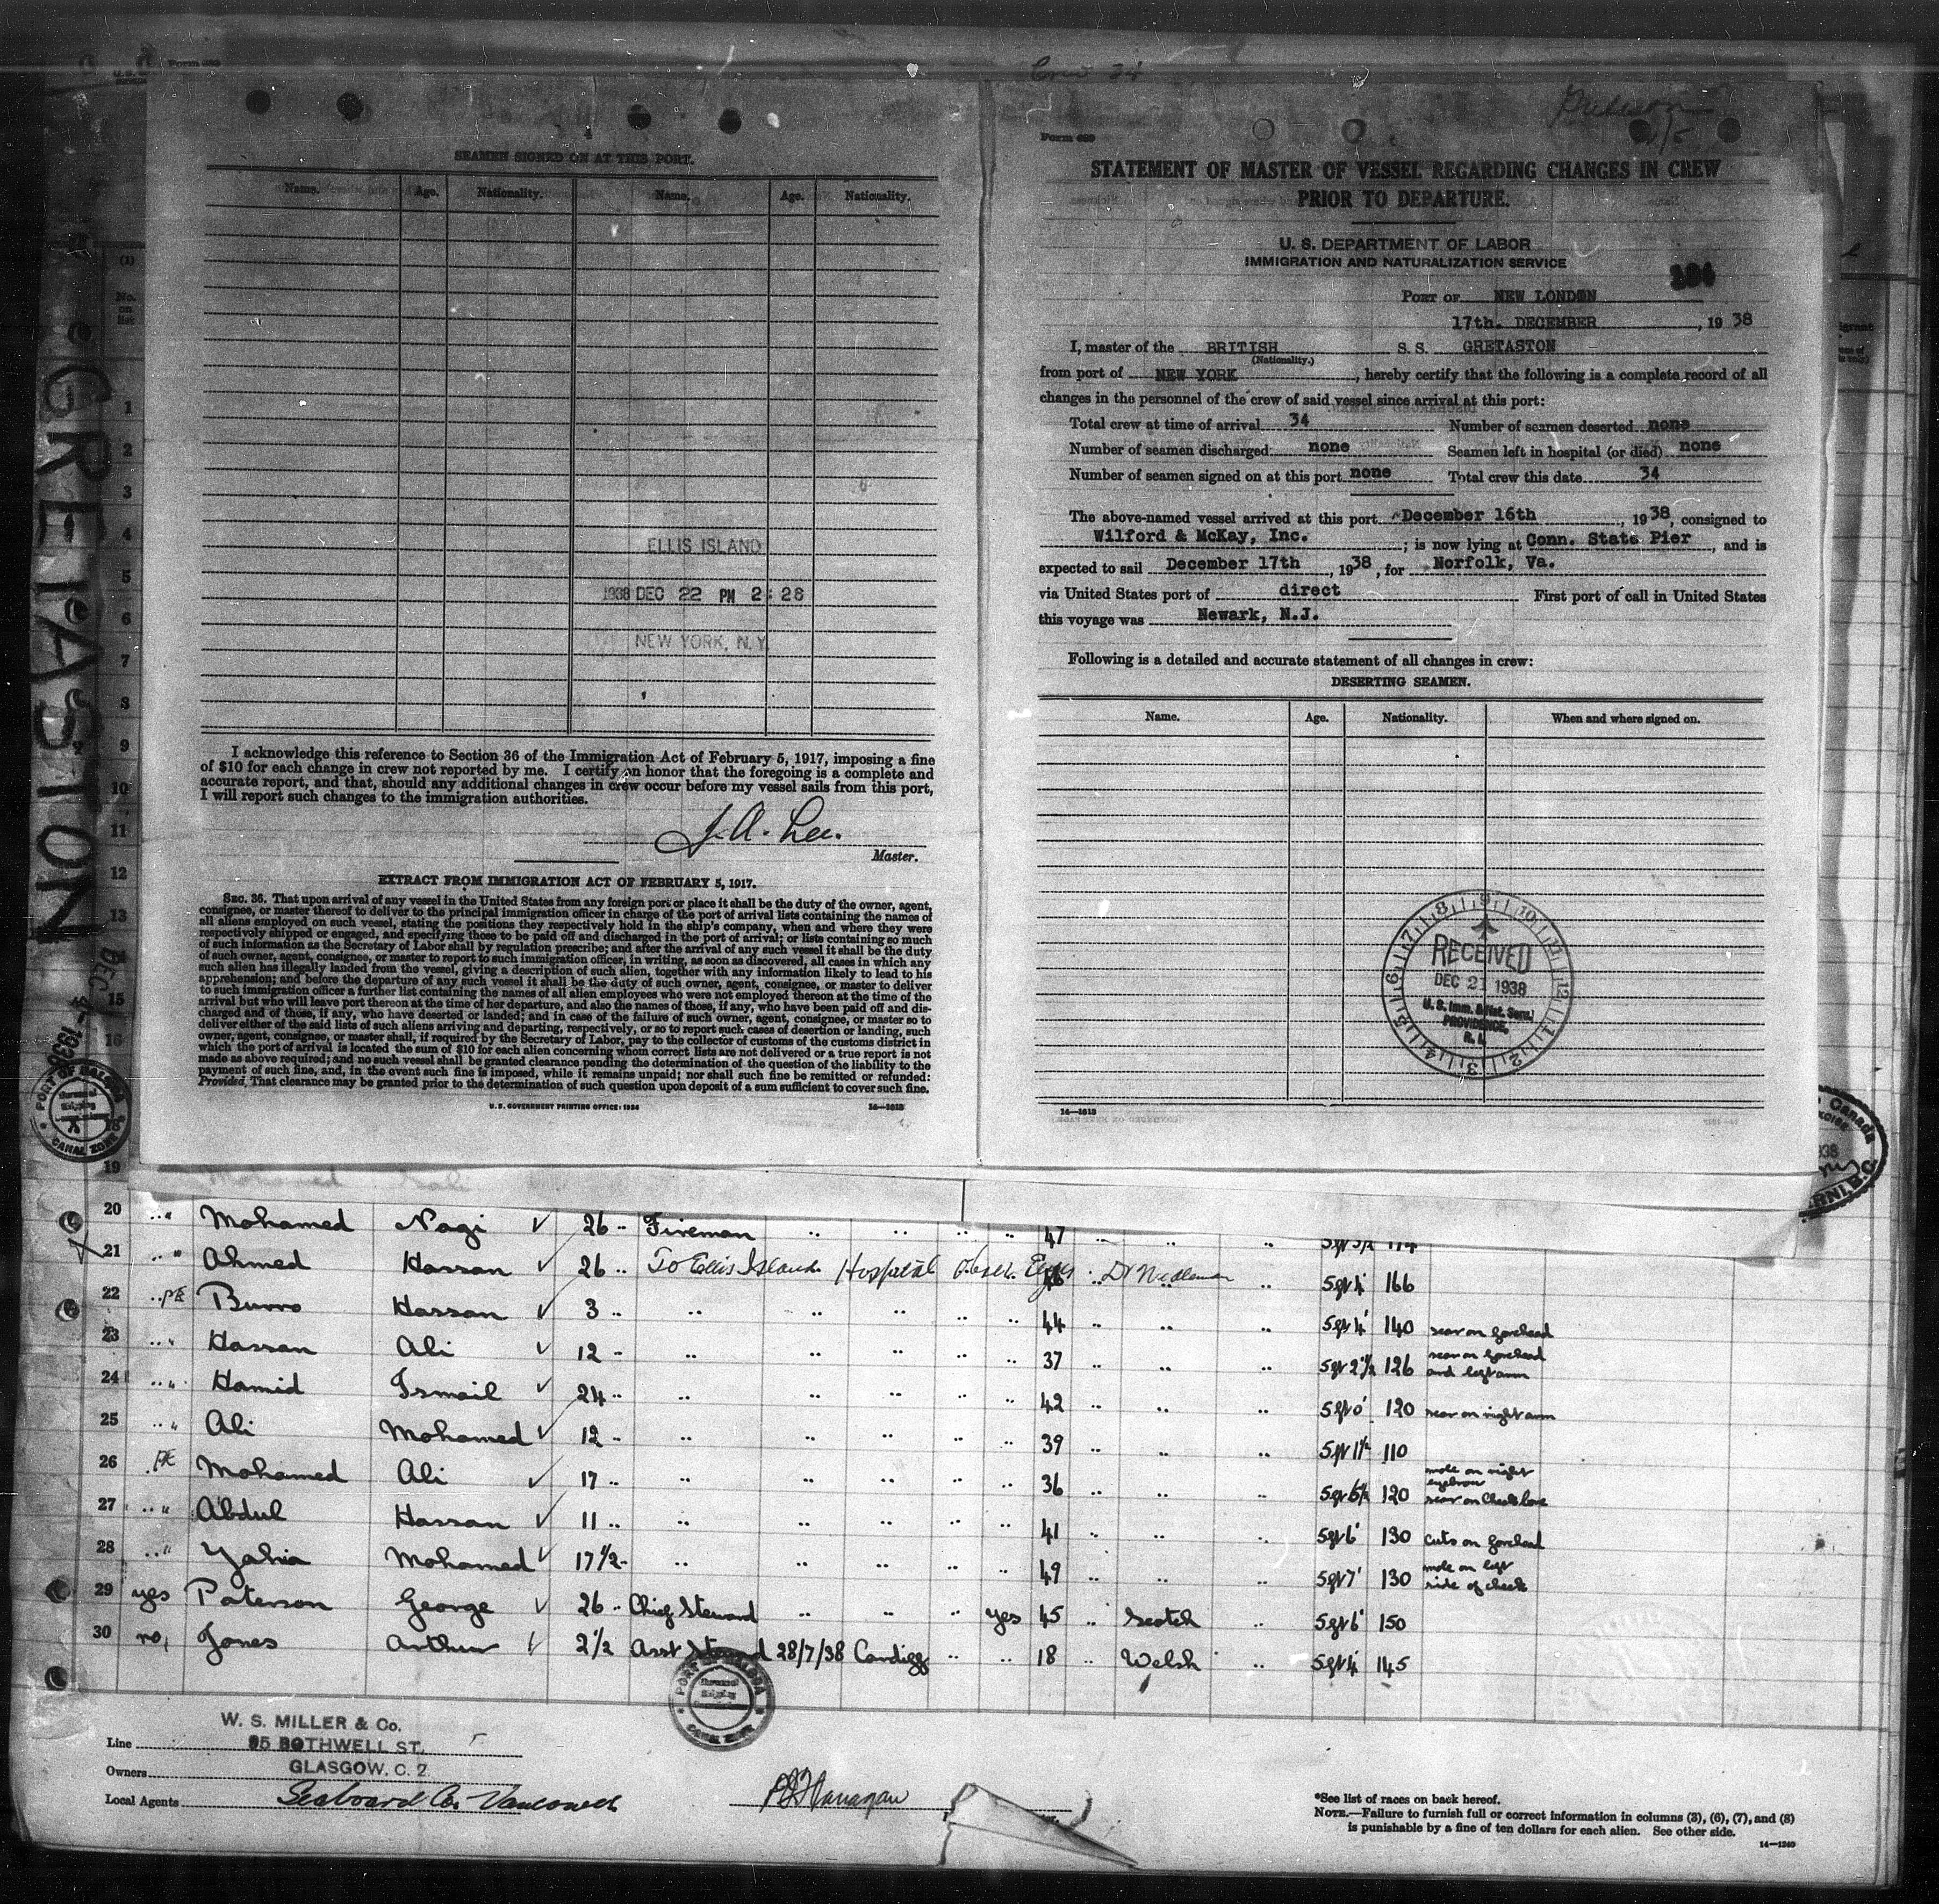 Crew 34
Form 689
SEAMEN SIGNED ON AT THIS PORT.
Name. Age. Nationality. Name. Age. Nationality.
ELLIS ISLAND
1938 DEC 22 PM 2:28
NEW YORK, N.Y.
I acknowledge this reference to Section 36 of the Immigration Act of February 5, 1917, imposing a fine
of $10 for each change in crew not reported by me. I certify on honor that the foregoing is a complete and
accurate report, and that, should any additional changes in crew occur before my vessel sails from this port,
I will report such changes to the immigration authorities.
J. A. Lee.
Master.
EXTRACT FROM IMMIGRATION ACT OF FEBRUARY 5, 1917.
SEC. 36. That upon arrival of any vessel in the United States from any foreign port or place it shall be the duty of the owner, agent,
consignee, or master thereof to deliver to the principal immigration officer in charge of the port of arrival lists containing the names of
all aliens employed on such vessel, stating the positions they respectively hold in the ship's company, when and where they were
respectively shipped or engaged, and specifying those to be paid off and discharged in the port of arrival; or lists containing so much
of such information as the Secretary of Labor shall by regulation prescribe; and after the arrival of any such vessel it shall be the duty
of such owner, agent, consignee, or master to report to such immigration officer, in writing, as soon as discovered, all cases in which any
such alien has illegally landed from the vessel, giving a description of such alien, together with any information likely to lead to his
apprehension; and before the departure of any such vessel it shall be the duty of such owner, agent, consignee, or master to deliver
to such immigration officer a further list containing the names of all alien employees who were not employed thereon at the time of the
arrival but who will leave port thereon at the time of her departure, and also the names of those, if any, who have been paid off and dis-
charged and of those, if any, who have deserted or landed; and in case of the failure of such owner, agent, consignee, or master so to
deliver either of the said lists of such aliens arriving and departing, respectively, or so to report such cases of desertion or landing, such
owner, agent, consignee, or master shall, if required by the Secretary of Labor, pay to the collector of customs of the customs district in
which the port of arrival is located the sum of $10 for each alien concerning whom correct lists are not delivered or a true report is not
made as above required; and no such vessel shall be granted clearance pending the determination of the question of the liability to the
payment of such fine, and, in the event such fine is imposed, while it remains unpaid; nor shall such fine be remitted or refunded:
Provided, That clearance may be granted prior to the determination of such question upon deposit of a sum sufficient to cover such fine.
U. S. GOVERNMENT PRINTING OFFICE: 1934 14—1613
Form 689
STATEMENT OF MASTER OF VESSEL REGARDING CHANGES IN CREW
PRIOR TO DEPARTURE.
U. S. DEPARTMENT OF LABOR
IMMIGRATION AND NATURALIZATION SERVICE
PORT OF NEW LONDON
17th. DECEMBER, 1938
I, master of the BRITISH S. S. GRETASTON
(Nationality.)
from port of NEW YORK, hereby certify that the following is a complete record of all
changes in the personnel of the crew of said vessel since arrival at this port:
Total crew at time of arrival 34 Number of seamen deserted none
Number of seamen discharged none Seamen left in hospital (or died) none
Number of seamen signed on at this port none Total crew this date 34
The above-named vessel arrived at this port December 16th, 1938, consigned to
Wilford & McKay, Inc.; is now lying at Conn. State Pier, and is
expected to sail December 17th, 1938, for Norfolk, Va.
via United States port of direct First port of call in United States
this voyage was Newark, N.J.
Following is a detailed and accurate statement of all changes in crew:
DESERTING SEAMEN.
Name. Age. Nationality. When and where signed on.
RECEIVED
DEC 21 1938
U. S. Imm. & Nat. Serv.
PROVIDENCE,
R. I.
14—1613
GRETASTON
No. on list
1
2
3
4
5
6
7
8
9
10
11
12
13
15
16
18
19
PORT OF BALBOA
CANAL ZONE
20 .. " Mohamed Nagi √ 26 .. Fireman .. .. .. .. 47 .. .. 5ft 5½ 174
21 .. " Ahmed Hassan √ 26 .. To Ellis Island Hospital Eyes Dr Nedleman .. 5ft 4 166
22 .. PE Burro Hassan √ 3 .. .. .. .. .. 44 .. .. .. 5ft 4 140 scar on forehead
23 .. " Hassan Ali √ 12 .. .. .. .. .. 37 .. .. .. 5ft 2½ 126 scar on forehead and left arm
24 .. " Hamid Ismail √ 24 .. .. .. .. .. 42 .. .. .. 5ft 0 120 scar on right arm
25 .. " Ali Mohamed √ 12 .. .. .. .. .. 39 .. .. .. 5ft 1½ 110
26 PE Mohamed Ali √ 17 .. .. .. .. .. 36 .. .. .. 5ft 6½ 120 mole on right eyebrow scar on Cheek bone
27 .. " Abdul Hassan √ 11 .. .. .. .. .. 41 .. .. .. 5ft 6 130 cuts on forehead
28 .. " Yahia Mohamed √ 17½ .. .. .. .. .. 49 .. .. .. 5ft 7 130 mole on left side of cheek
29 yes Paterson George √ 26 .. Chief Steward .. .. .. yes 45 .. Scotch .. 5ft 6 150
30 no, Jones Arthur √ 2½ Asst Steward 28/7/38 Cardiff .. .. 18 .. Welsh .. 5ft 4 145
PORT OF BALBOA
CANAL ZONE
W. S. MILLER & Co.
Line 95 BOTHWELL ST.
Owners GLASGOW, C. 2
Local Agents Seaboard Co. Vancouver
*See list of races on back hereof.
NOTE.—Failure to furnish full or correct information in columns (3), (6), (7), and (8)
is punishable by a fine of ten dollars for each alien. See other side.
14—1240